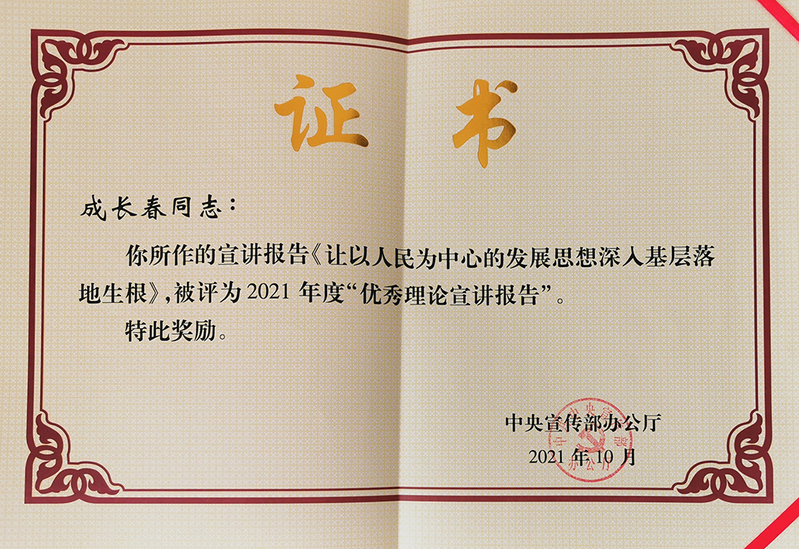 证书
成长春同志：
你所作的宣讲报告《让以人民为中心的发展思想深入基层落
地生根》，被评为 2021 年度“优秀理论宣讲报告”。
特此奖励。
中央宣传部办公厅
2021 年 10 月
中共中央宣传部
办公厅